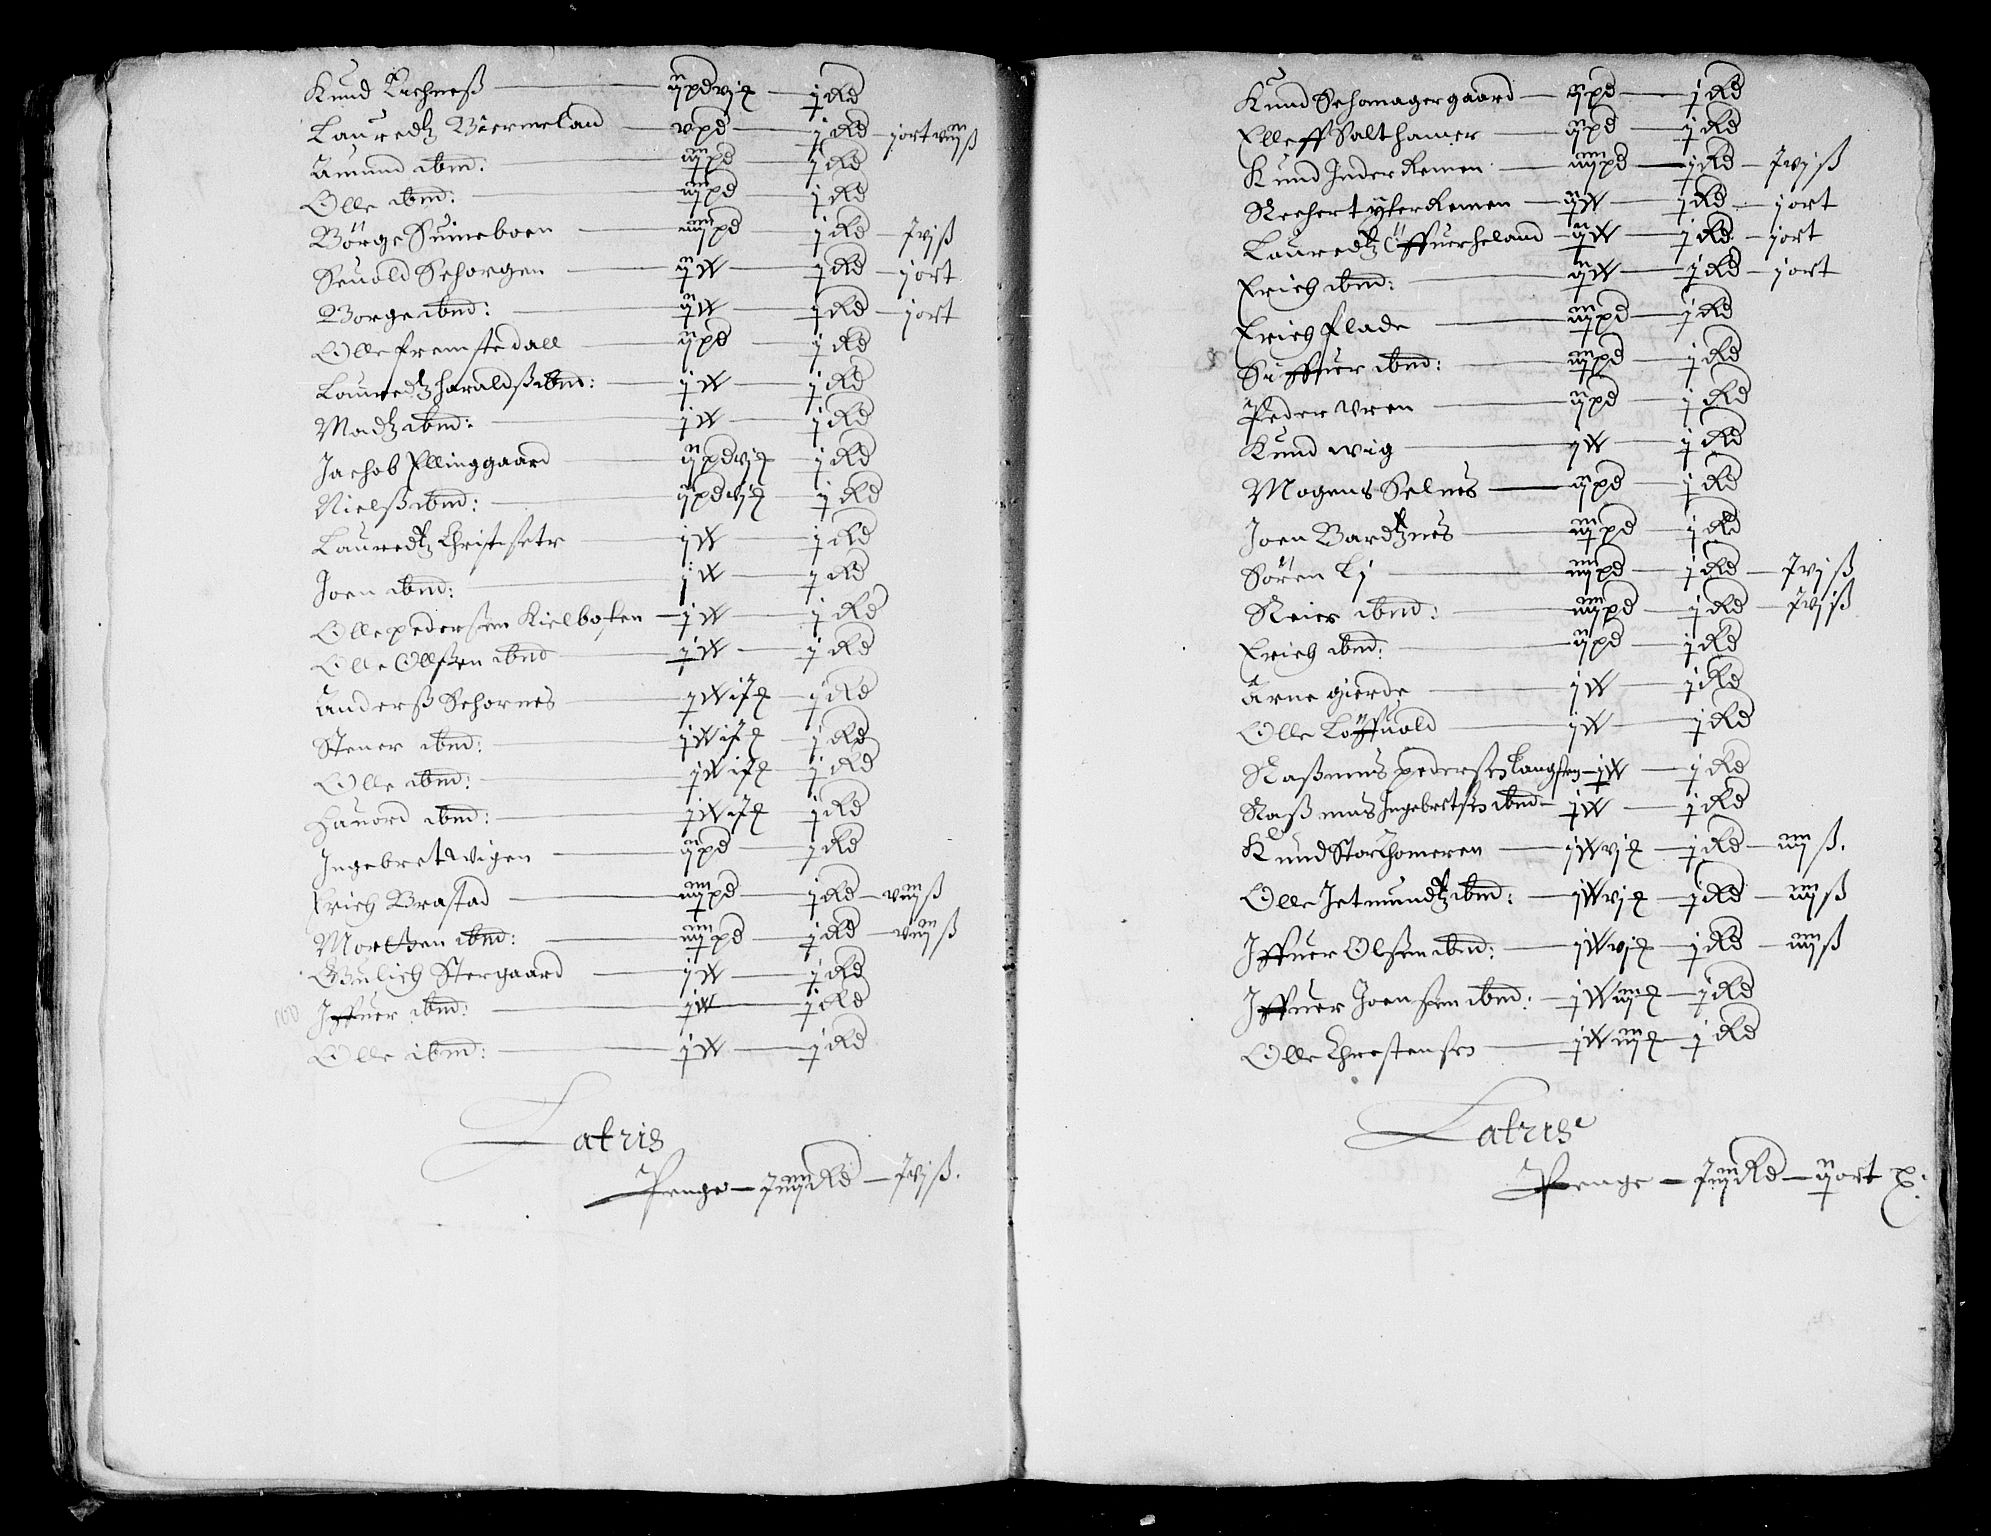 Knud Lachneß — ijpd vj ꝶ — j Rd
Lauredtz Biermeland — vpd — j Rd — j ort viijß
Amund ibnd: — iijpd — j Rd
Olle ibnd: — iijpd — j Rd
Börge Suineboen — iiijpd — j Rd — Jvjß
Seuold Schorgen — ijW — j Rd — j ort
Borge ibnd: — ijW — j Rd — j ort
Olle fremstedall — ijpd — j Rd
Lauredtz haraldß ibnd: — jW — j Rd
Madtz ibnd: — jW — j Rd
Jachob Ellinggaard — ijpd vj ꝶ — j Rd
Nielß ibnd: — ijpd vj ꝶ — j Rd
Lauredtz Christsetr — jW — j Rd
Joen ibnd: — jW — j Rd
Olle pedersen Kielbotten — jW — j Rd
Olle Olßen ibnd — jW — j Rd
Anderß Schornes — jW iJ ꝶ — j Rd
Stener ibnd: — jW iJ ꝶ — j Rd
Olle ibnd: — jW iJ ꝶ — j Rd
Hauord ibnd: — jW iJ ꝶ — j Rd
Ingebret Wigen — ijpd — j Rd
Erich Brastad — iiijpd — j Rd — viijß
Mortßen ibnd: — iiijpd — j Rd — viijß
Gulich Stergaard — jW — j Rd
100 Iffuer ibnd: — jW — j Rd
Olle ibnd: — jW — j Rd
Latris
Penge — Jiiij Rd — Jvjß.
Knud Schomagergaard — ijpd — j Rd
Elleff Salthamer — ijpd — j Rd
Knud Inder Remen — iiijpd — j Rd — Jvjß
Rechert yter Remen — ijW — j Rd — j ort
Lauredtz Öffuerheland — ijW — j Rd — j ort
Erich ibnd: — ijW — j Rd — j ort
Erich flade — iijpd — j Rd
Siffuer ibnd: — iijpd — j Rd
Peder Vren — ijpd — j Rd
Knud wig — jW — j Rd
Mogens Selnes — ijpd — j Rd
Joen Bardtznes — iijpd — j Rd
Sören Lj — iiijpd — j Rd — Jvjß
Reier ibnd: — iiijpd — j Rd — Jvjß
Erich ibnd: — ijpd — j Rd
Arne gierde — jW — j Rd
Olle Löffuold — jW — j Rd
Raßmus pedersen Langsen — jW — j Rd
Raßmus Ingebretsen ibnd — jW — j Rd
Knud Storhomeren — jW vj ꝶ — j Rd — iiijß.
Olle Jetmundtz ibnd: — jW vj ꝶ — j Rd — iiijß
Iffuer Olsen ibnd: — jW vj ꝶ — j Rd — iiijß
Iffuer Joensen ibnd: — jW iiij ꝶ — j Rd
Olle Chrestensen — jW iiij ꝶ — j Rd
Latris
Penge — Jiij Rd — ij ort